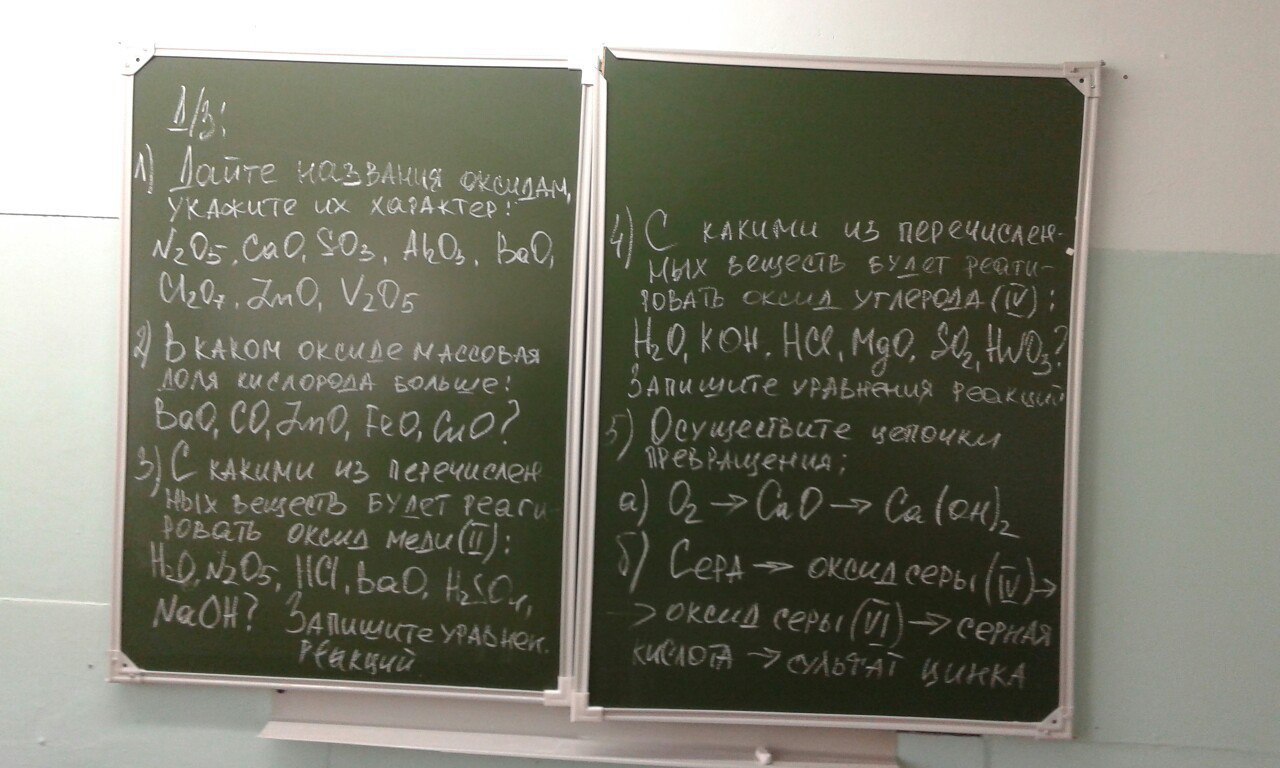 Д/З:
1) Дайте названия оксидам,
укажите их характер:
N₂O₅, CaO, SO₃, Al₂O₃, BaO,
Cl₂O₇, ZnO, V₂O₅
2) В каком оксиде массовая
доля кислорода больше:
BaO, CO, ZnO, FeO, CuO?
3) С какими из перечислен
ных веществ будет реаги
ровать оксид меди (II):
H₂O, N₂O₅, HCl, BaO, H₂SO₄,
NaOH? Запишите уравнен.
реакций
4) С какими из перечислен-
ных веществ будет реаги-
ровать оксид углерода (IV):
H₂O, KOH, HCl, MgO, SO₂, HNO₃?
Запишите уравнения реакций
5) Осуществите цепочки
превращения:
а) O₂ → CaO → Ca(OH)₂
б) Сера → оксид серы (IV) →
→ оксид серы (VI) → серная
кислота → сульфат цинка